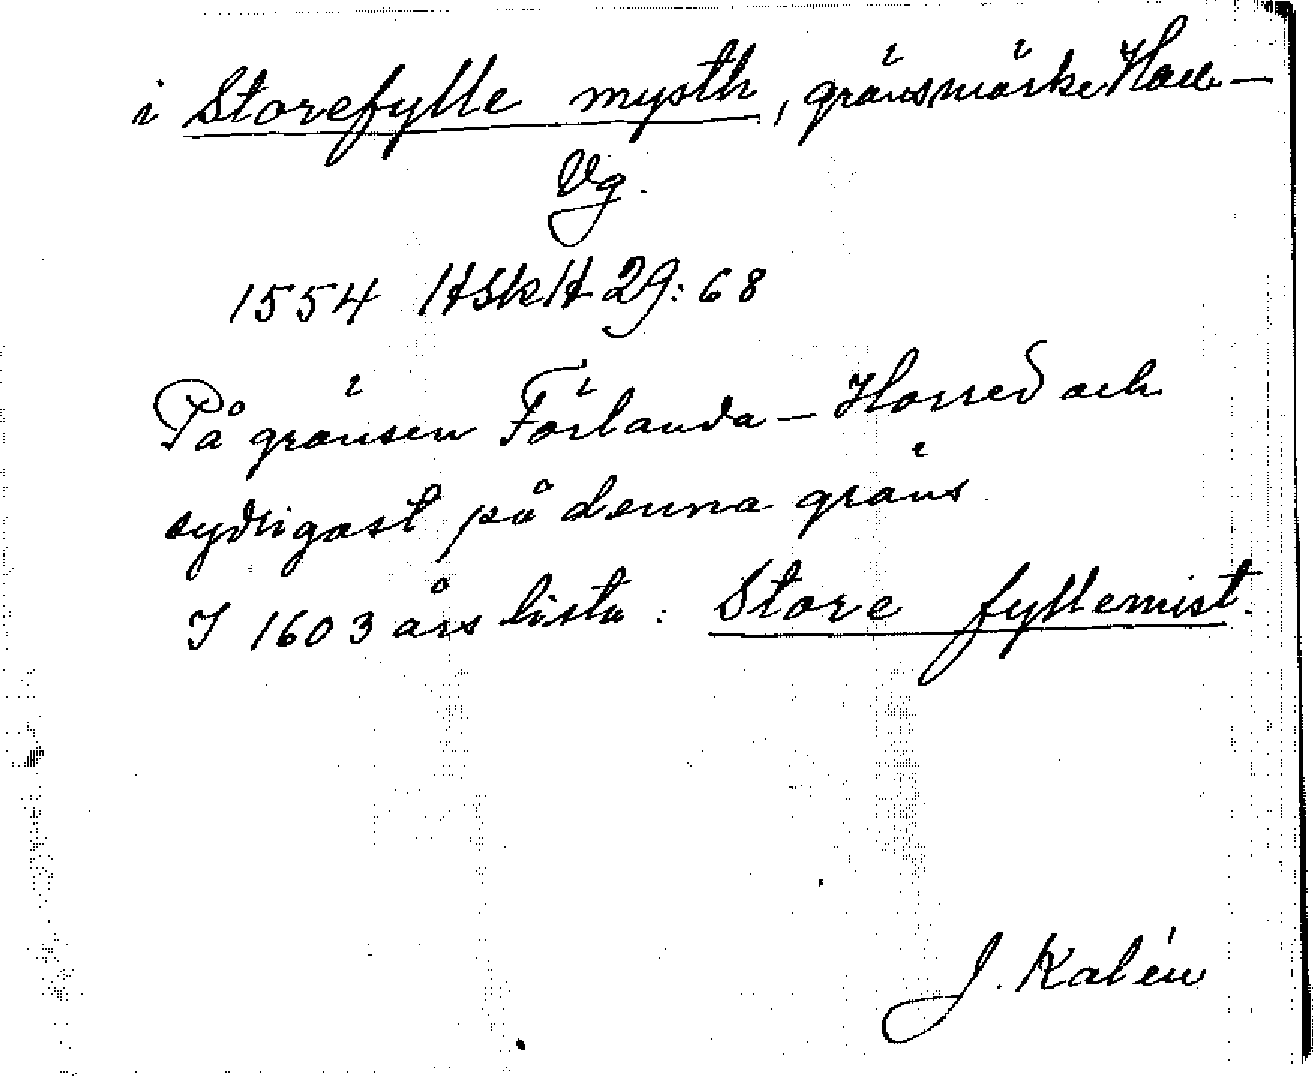 i Storefylle mysth, gränsmärke Hall-
Vg.
1554 HSkH 29:68
På gränsen Förlanda - Horred och
sydligast på denna gräns
I 1603 års lista: Store fyllemist.
J. Kalén